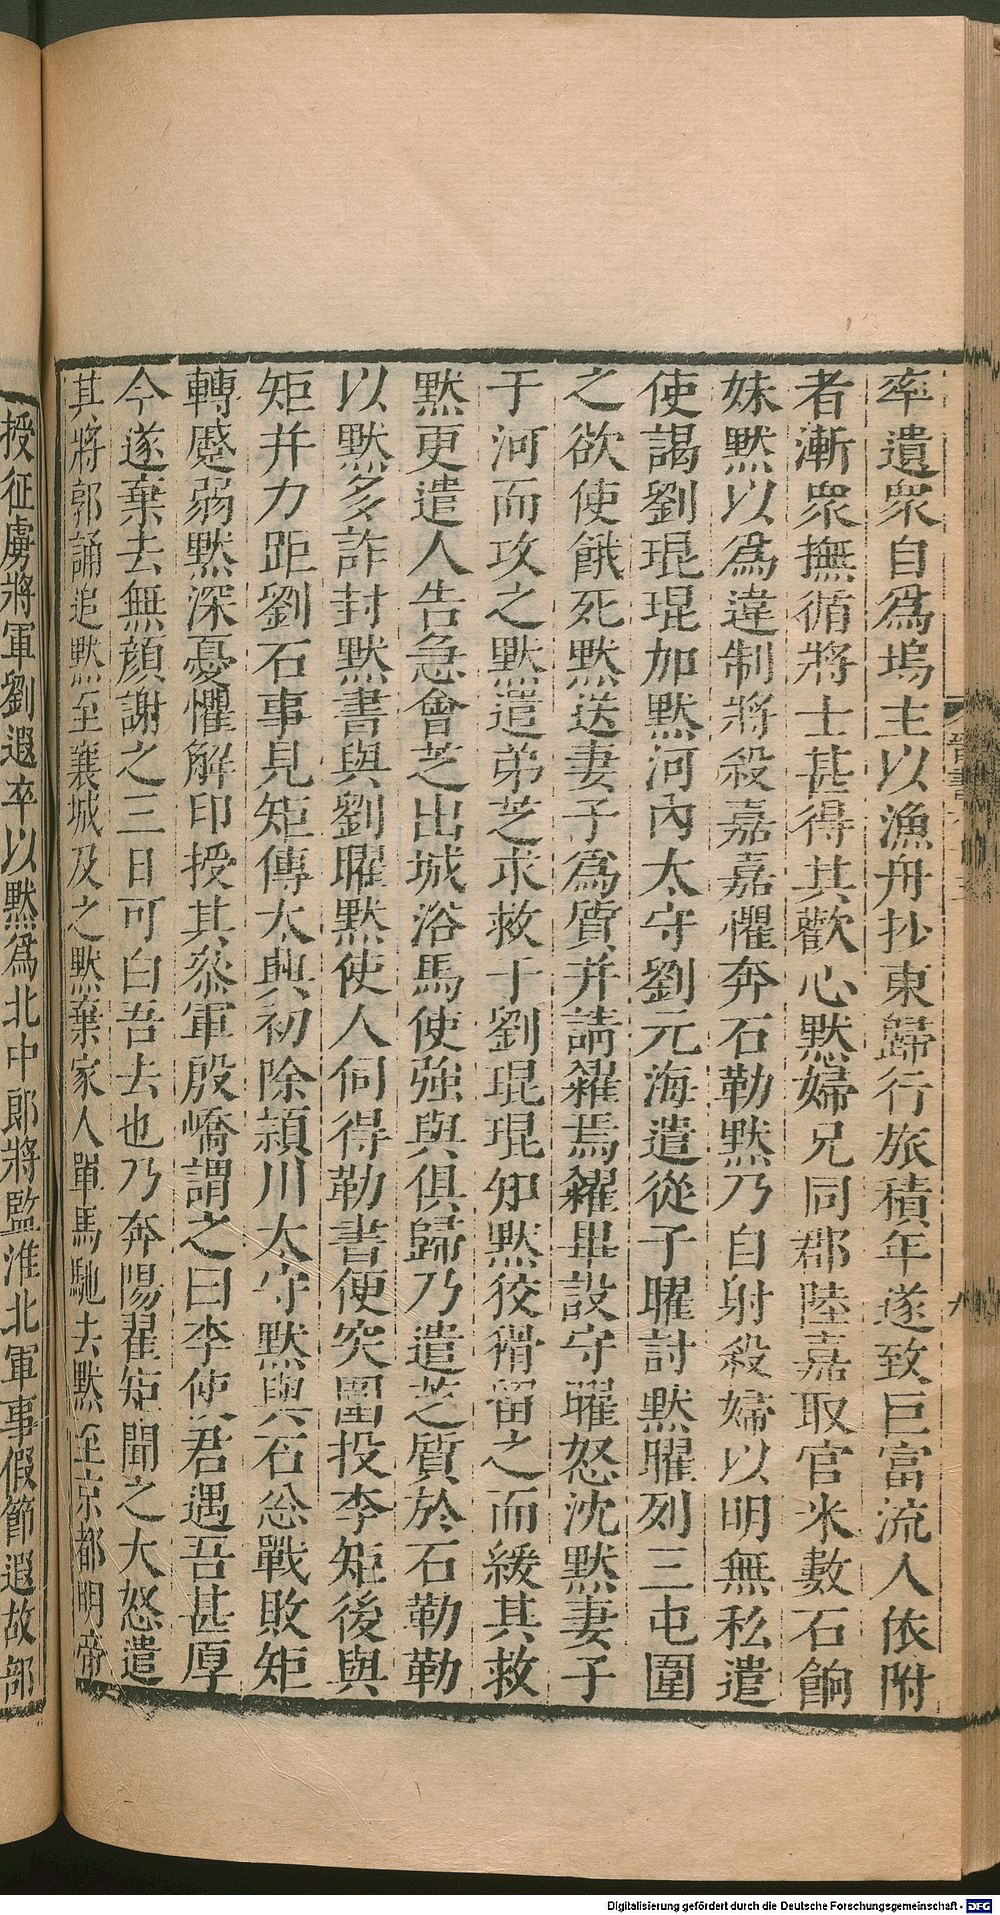 率遺眾自爲塢主以漁舟抄東歸行旅積年遂致巨富流人依附
者漸眾撫循將士甚得其歡心默婦兄同郡陸嘉取官米數石餉
妹默以爲違制將殺嘉嘉懼奔石勒默乃自射殺婦以明無私遣
使謁劉琨琨加默河內太守劉元海遣從子曜討默曜列三屯圍
之欲使餓死默送妻子爲質并請糴焉糴畢設守曜怒沈默妻子
于河而攻之默遣弟芝求救于劉琨琨知默狡猾留之而緩其救
默更遣人告急會芝出城浴馬使強與俱歸乃遣芝質於石勒勒
以默多詐封默書與劉曜默使人伺得勒書便突圍投李矩後與
矩并力距劉石事見矩傳太興初除潁川太守默與石怱戰敗矩
轉蹙弱默深憂懼解印授其叅軍殷嶠謂之曰李使君遇吾甚厚
今遂棄去無顔謝之三日可白吾去也乃奔陽翟矩聞之大怒遣
其將郭誦追默至襄城及之默棄家人單馬馳去默至京都明帝
授征虜將軍劉遐卒以默爲北中郎將監淮北軍事假節遐故部
Digitalisierung gefördert durch die Deutsche Forschungsgemeinschaft - DFG